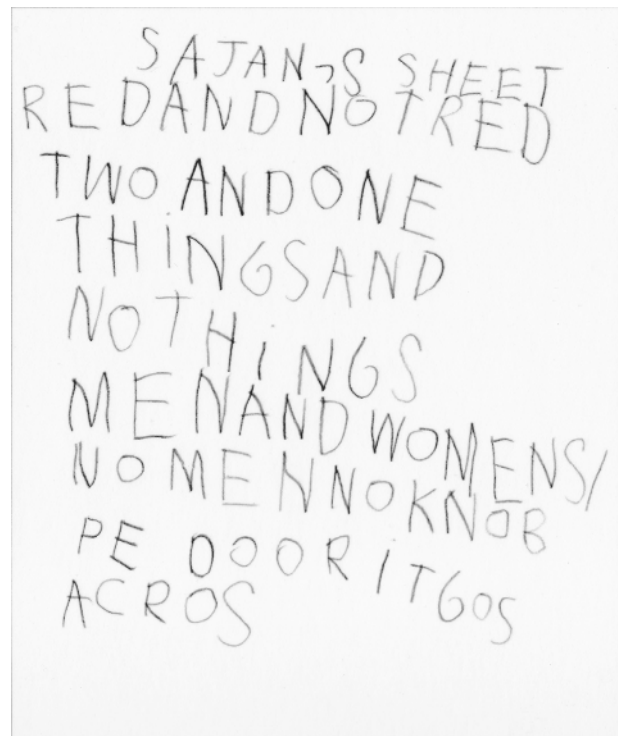 SAJAN,S SHEET
REDANDNOTRED
TWO ANDONE
THiNGSAND
NOTHiNGS
MENANDWOMENS/
NOMENNOKNOB
PE DOORITGOS
ACROS